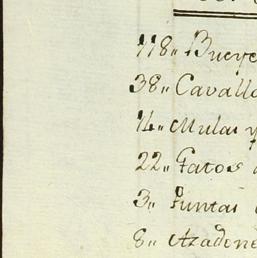 118,, Bueye
38,, Cavallo
14,, Mulas y
22,, Fatos
3,, Puntas
8,, Azadone